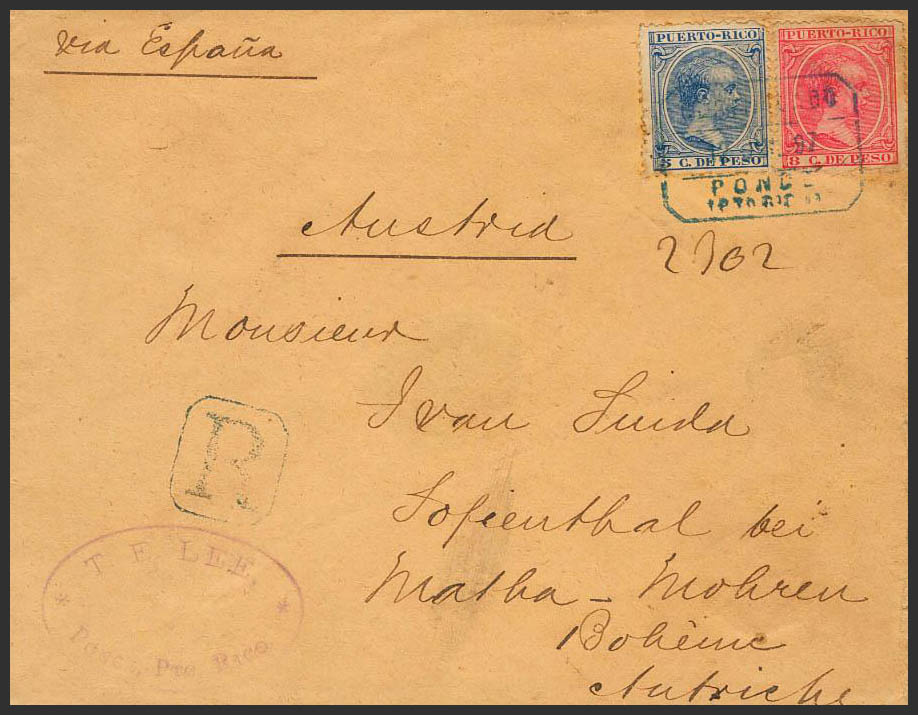 via España
PUERTO-RICO
5 C. DE PESO
PUERTO-RICO
8 C. DE PESO
PONCE
Austria
2702
Monsieur
Ivan
Sofienthal bei
Matha - Mohren
Bohême
Autriche
R
T E LEE,
PONCE, PTO RICO